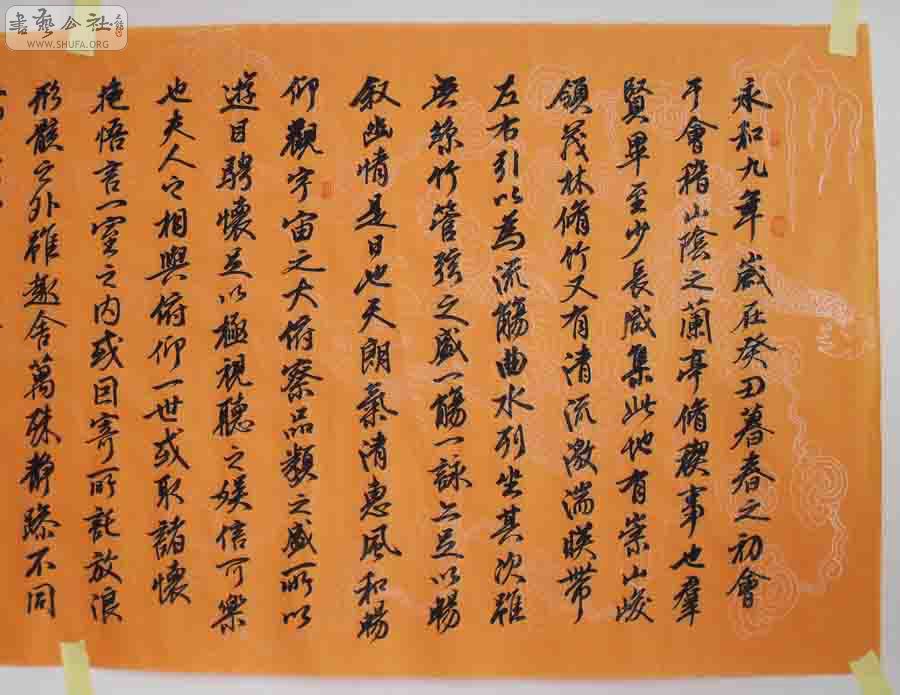 書藝公社
WWW.SHUFA.ORG
永和九年歲在癸丑暮春之初會
于會稽山陰之蘭亭脩稧事也羣
賢畢至少長咸集此地有崇山峻
領茂林脩竹又有清流激湍暎帶
左右引以為流觴曲水列坐其次雖
無絲竹管弦之盛一觴一詠亦足以暢
叙幽情是日也天朗氣清惠風和暢
仰觀宇宙之大俯察品類之盛所以
遊目騁懷足以極視聽之娛信可樂
也夫人之相與俯仰一世或取諸懷
抱悟言一室之内或因寄所託放浪
形骸之外雖趣舍萬殊静躁不同